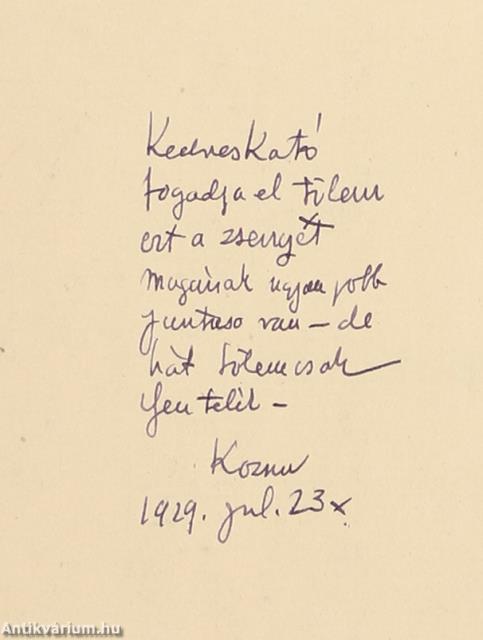 Kedves Kató
fogadja el tőlem
ezt a zsengét
magának ugyan jobb
van – de
hát tőlem csak
ilyen telik –
Kozma
1929. jul. 23
Antikvárium.hu